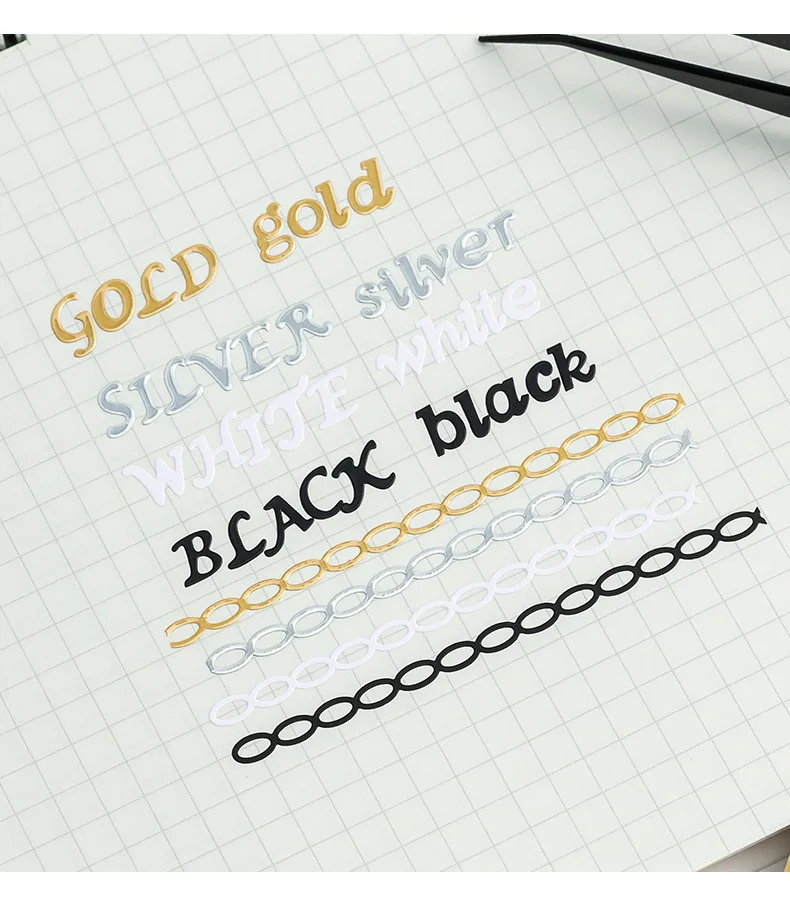 GOLD gold
SILVER silver
WHITE white
BLACK black